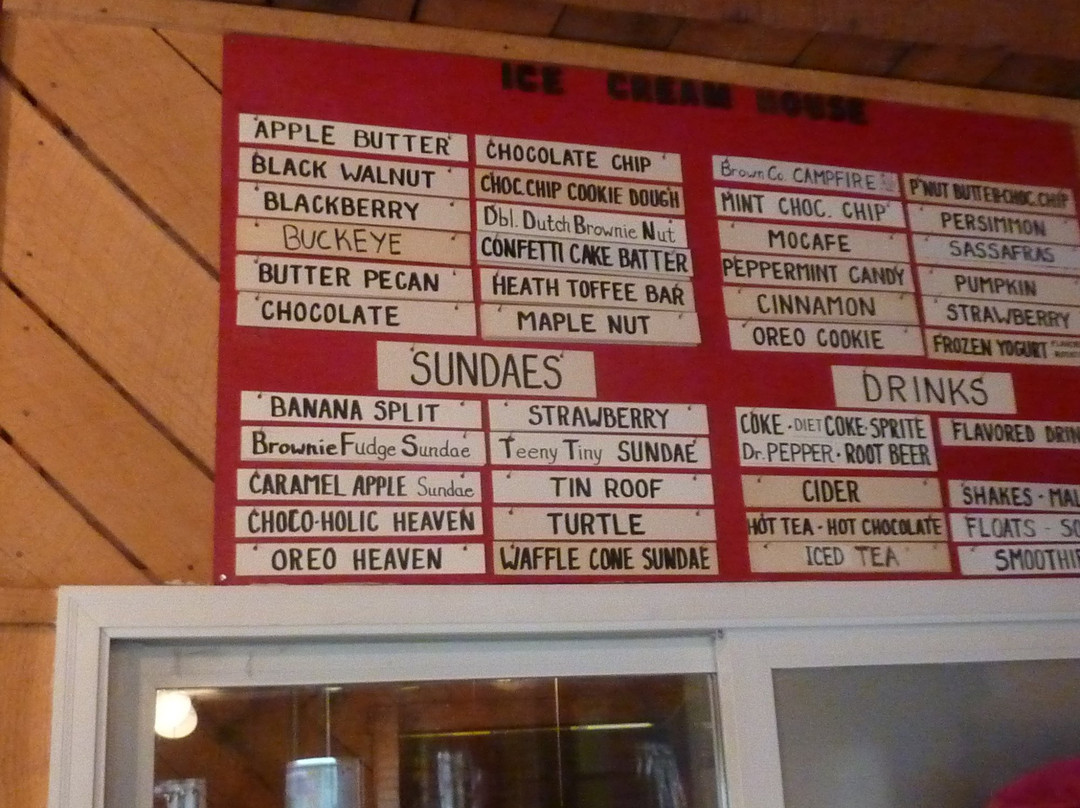 ICE CREAM HOUSE
APPLE BUTTER
BLACK WALNUT
BLACKBERRY
BUCKEYE
BUTTER PECAN
CHOCOLATE
CHOCOLATE CHIP
CHOC. CHIP COOKIE DOUGH
Dbl. Dutch Brownie Nut
CONFETTI CAKE BATTER
HEATH TOFFEE BAR
MAPLE NUT
Brown Co. CAMPFIRE
MINT CHOC. CHIP
MOCAFE
PEPPERMINT CANDY
CINNAMON
OREO COOKIE
P'NUT BUTTER-CHOC. CHIP
PERSIMMON
SASSAFRAS
PUMPKIN
STRAWBERRY
FROZEN YOGURT
SUNDAES
BANANA SPLIT
Brownie Fudge Sundae
CARAMEL APPLE Sundae
CHOCO-HOLIC HEAVEN
OREO HEAVEN
STRAWBERRY
Teeny Tiny SUNDAE
TIN ROOF
TURTLE
WAFFLE CONE SUNDAE
DRINKS
COKE · DIET COKE · SPRITE
Dr. PEPPER · ROOT BEER
CIDER
HOT TEA - HOT CHOCOLATE
ICED TEA
FLAVORED DRIN
SHAKES - MAL
FLOATS - SO
SMOOTHI